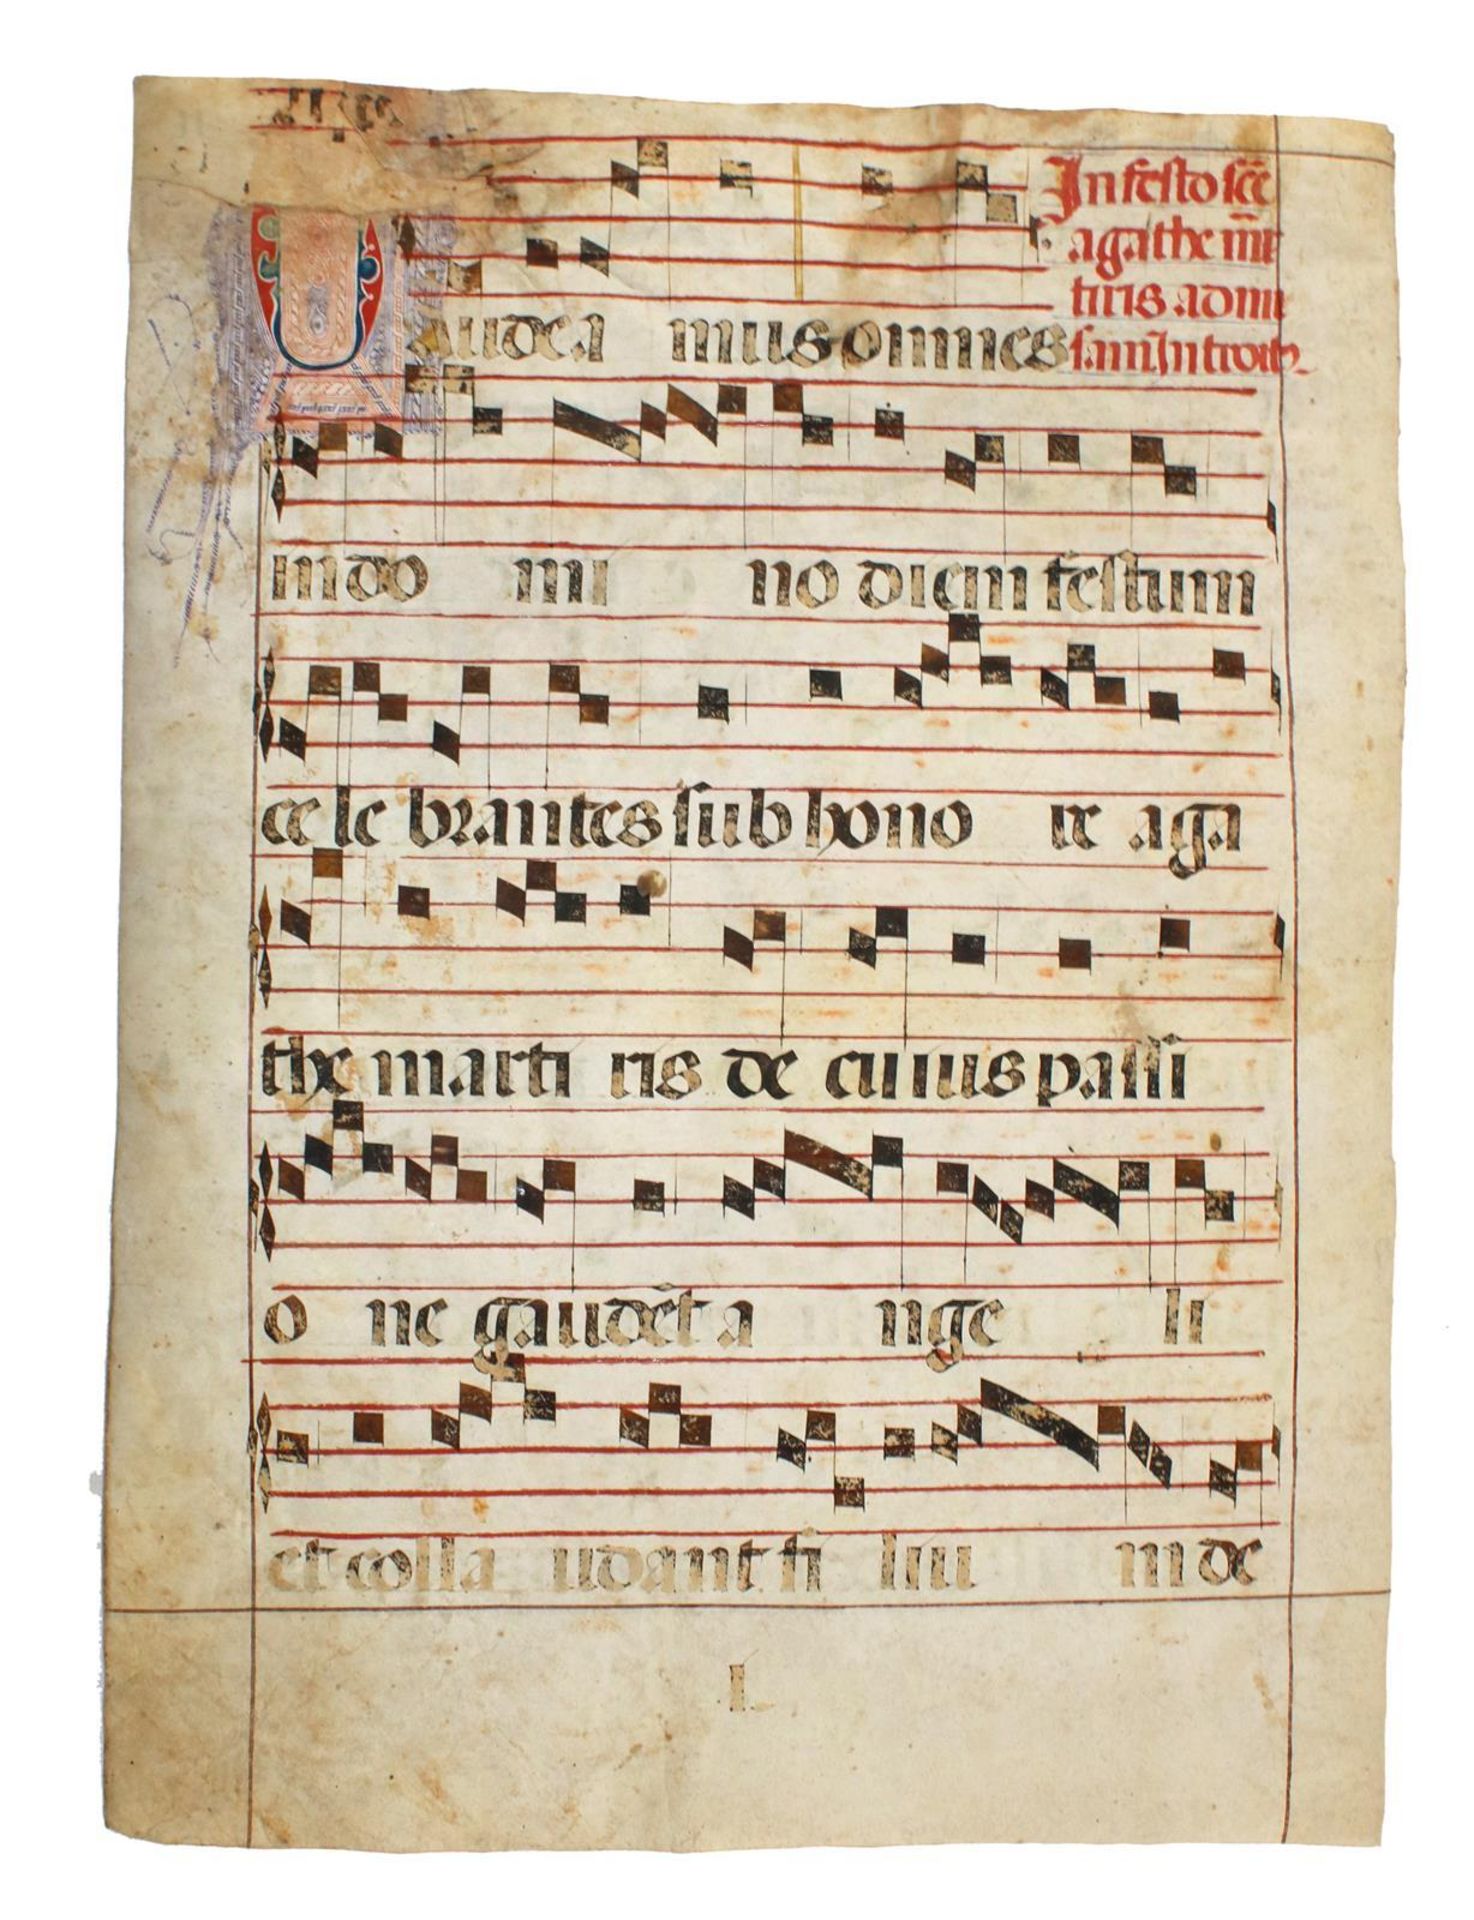 In festo sc̄e
agathe m̄r
tiris ad mi
sam Introit9
audea mus omnes
in do mi no diem festum
ce le brantes sub hono re aga
the marti ris de cuius passi
o ne gaudēt a nge li
et colla udant fi liu m de
I